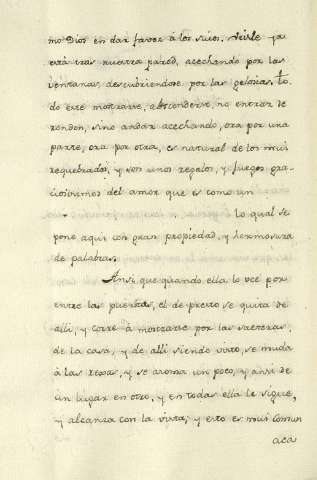 mo Dios en dar favor à los suios. Veisle ya
està tras nuestra pared, acechando por las
ventanas, descubriendose por las gelosias. to
do ese mostrarse, absconderse, no entrar de
rondon, sino andar acechando, ora por una
parte, ora por otra, es natural de los mui
requebrados, y son unos regalos, y juegos gra
ciosisimos del amor que es como un
lo qual se
pone aqui con gran propiedad, y hermosura
de palabras.
Ansi que quando ella lo vee por
entre las puertas, el de presto se quita de
alli, y corre à mostrarse por las saeteras,
de la casa, y de alli siendo visto, se muda
à las rexas, y se asoma un poco, y ansi de
un lugar en otro, y en todas ella le sigue,
y alcanza con la vista, y esto es mui comun
aca